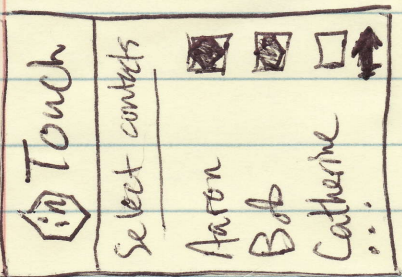 in Touch
Select contacts
Aaron
Bob
Catherine
...